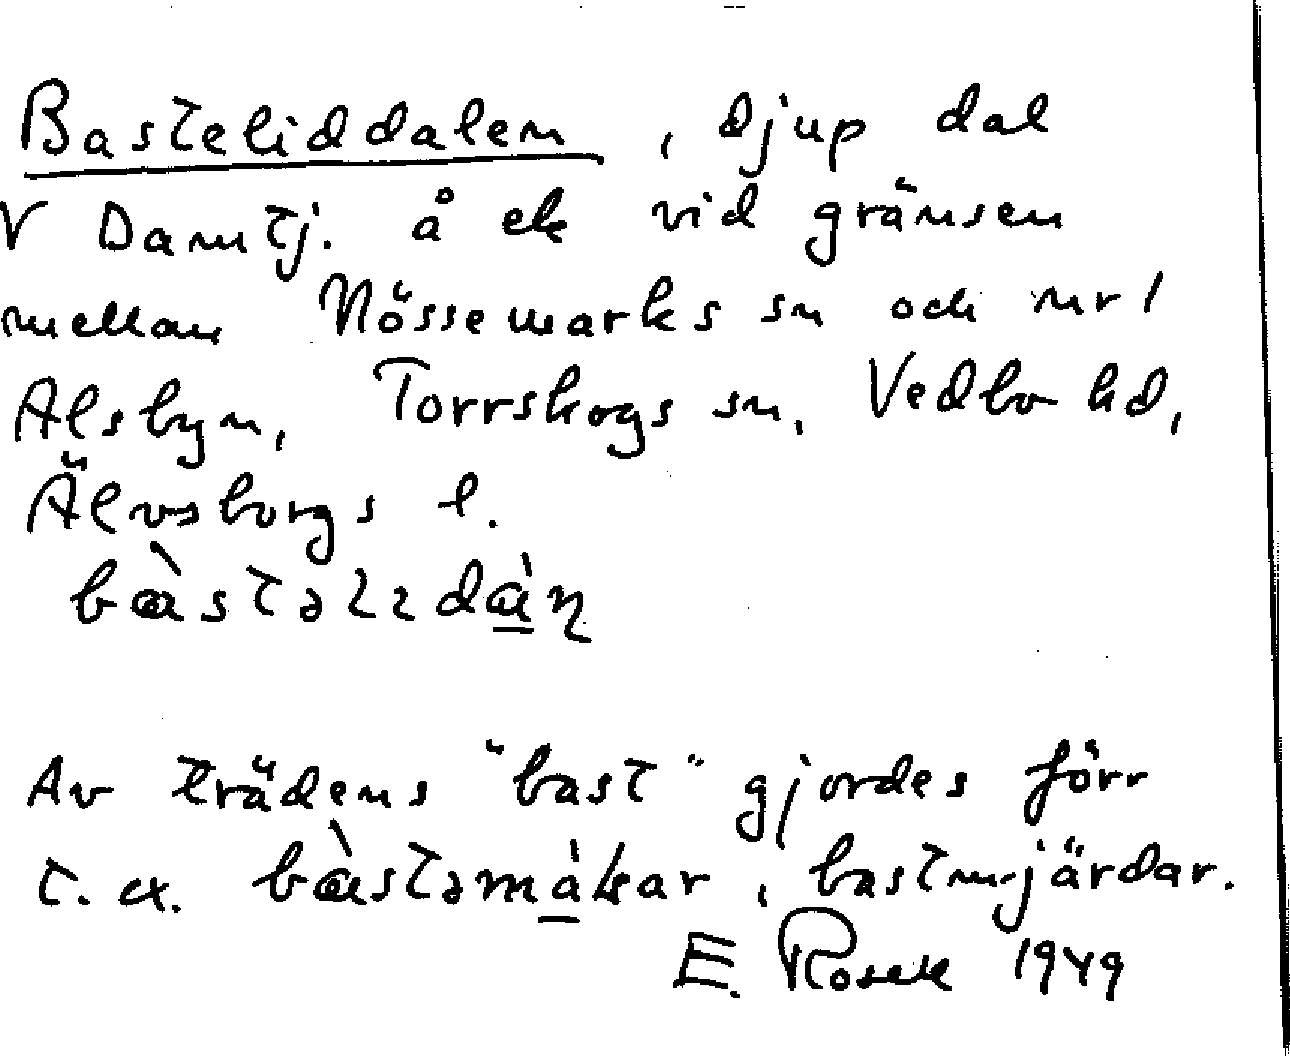 Basteliddalen, djup dal
V Damtj. å ek vid gränsen
mellan Nössemarks sn och nr 1
Alsbyn, Torrskogs sn, Vedbo hd,
Älvsborgs l.
Av trädens "bast" gjordes förr
t. ex. bastmjärdar.
E. Rosell 1949